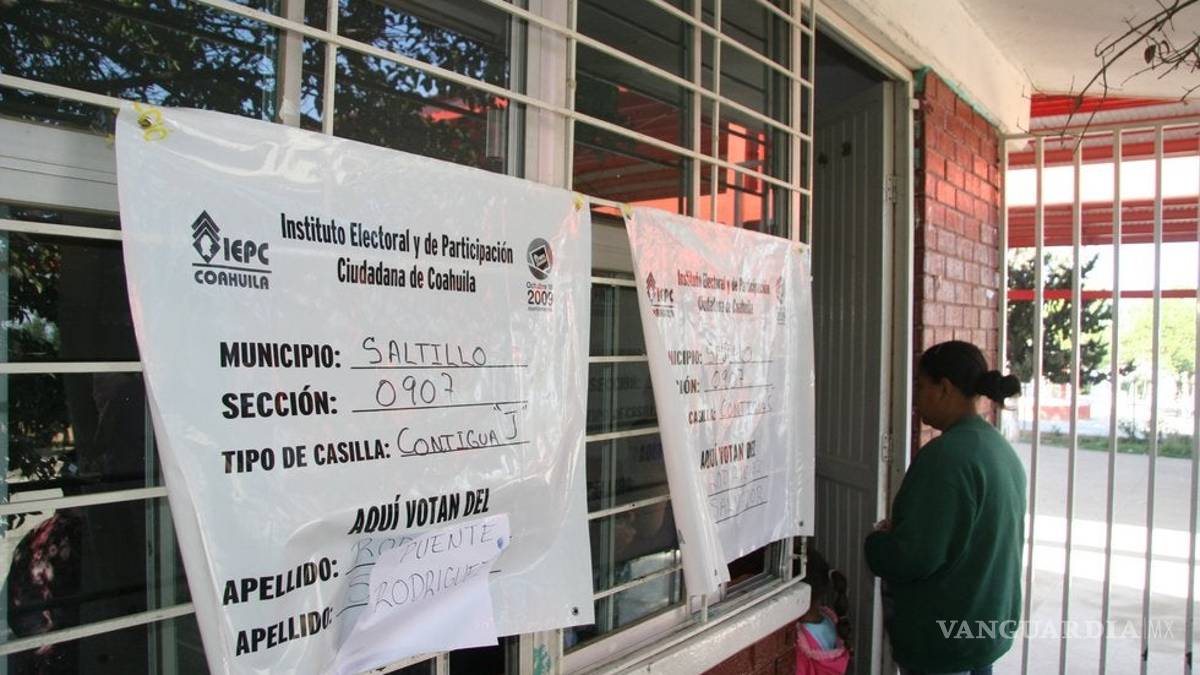 IEPC
COAHUILA
Instituto Electoral y de Participación
Ciudadana de Coahuila
Octubre 18
2009
MUNICIPIO: SALTILLO
SECCIÓN: 0907
TIPO DE CASILLA: CONTIGUA "J"
AQUÍ VOTAN DEL
APELLIDO: PUENTE
APELLIDO: RODRIGUEZ
IEPC
Instituto Electoral y de Participación
Ciudadana de Coahuila
NICIPIO: SALTILLO
CIÓN: 0907
CASILLA: CONTIGUA
AQUÍ VOTAN DEL
VANGUARDIA MX